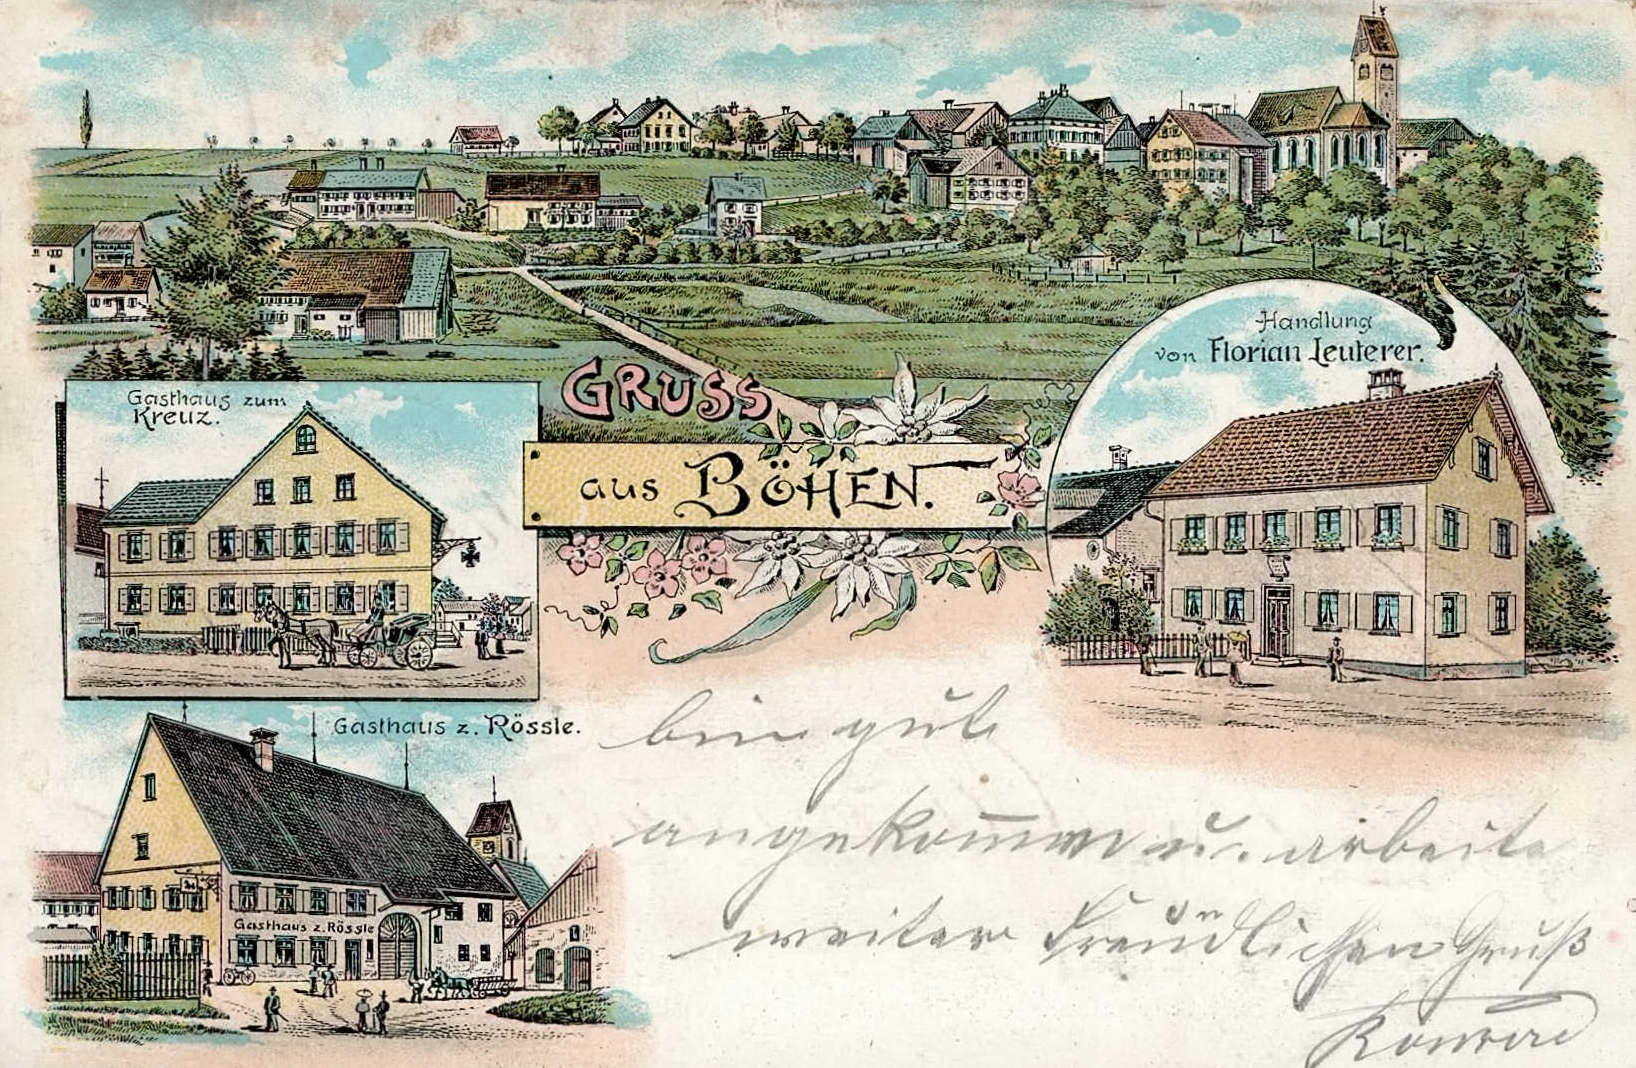 Handlung
von Florian Leuterer.
Gasthaus zum
Kreuz.
GRUSS
aus BÖHEN.
Gasthaus z. Rössle.
Gasthaus z. Rössle
bin gut
angekommen u. arbeite
weiter Freundlichen Gruß
Konrad